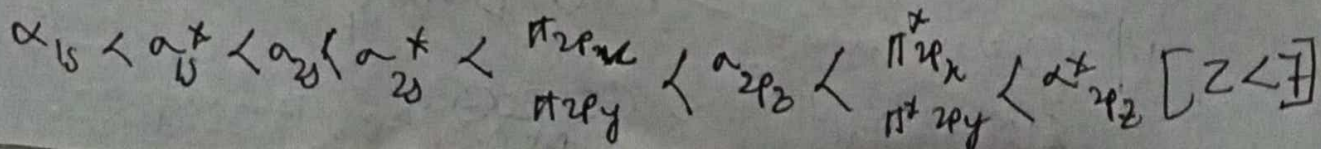 σ1s < σ*1s < σ2s < σ*2s < π2px π2py < σ2pz < π*2px π*2py < σ*2pz [Z<7]